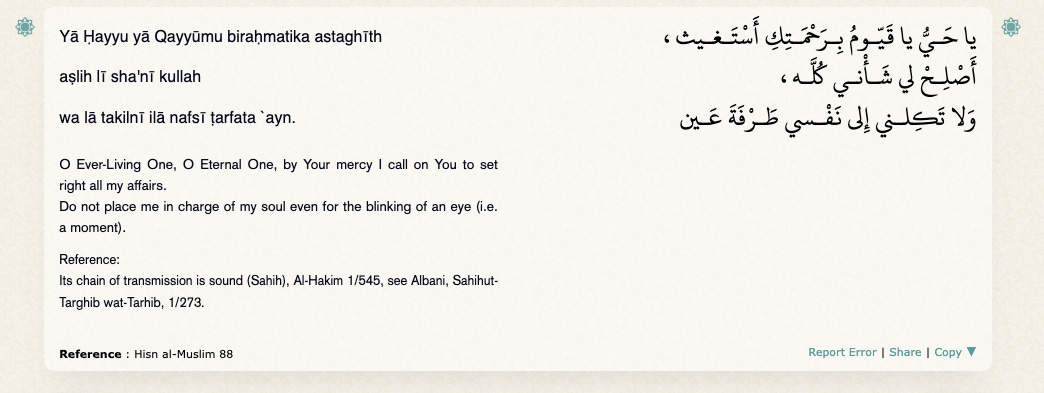 Yā Ḥayyu yā Qayyūmu biraḥmatika astaghīth
aṣliḥ lī sha'nī kullah
wa lā takilnī ilā nafsī ṭarfata `ayn.
يا حَـيُّ يا قَيّـومُ بِـرَحْمَـتِكِ أَسْتَـغـيث ،
أَصْلِـحْ لي شَـأْنـي كُلَّـه ،
وَلا تَكِلـني إِلى نَفْـسي طَـرْفَةَ عَـين
O Ever-Living One, O Eternal One, by Your mercy I call on You to set
right all my affairs.
Do not place me in charge of my soul even for the blinking of an eye (i.e.
a moment).
Reference:
Its chain of transmission is sound (Sahih), Al-Hakim 1/545, see Albani, Sahihut-
Targhib wat-Tarhib, 1/273.
Reference : Hisn al-Muslim 88
Report Error | Share | Copy ▼